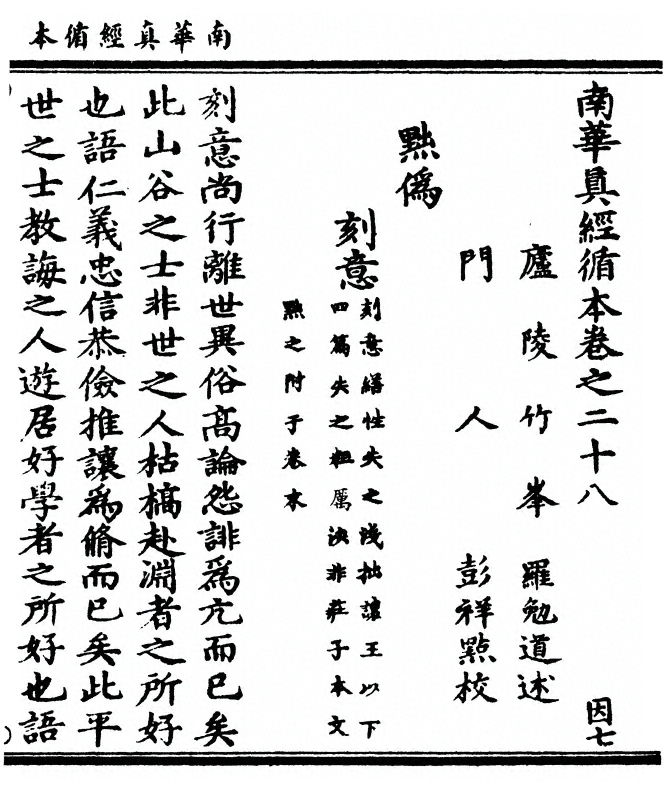 南華真經循本
南華真經循本卷之二十八
因七
廬陵竹峯羅勉道述
門人彭祥點校
黜僞
刻意
刻意繕性失之淺拙讓王以下
四篇失之粗厲決非莊子本文
黜之附于卷末
刻意尚行離世異俗髙論怨誹爲亢而已矣
此山谷之士非世之人枯槁赴淵者之所好
也語仁義忠信恭儉推讓爲脩而已矣此平
世之士教誨之人遊居好學者之所好也語